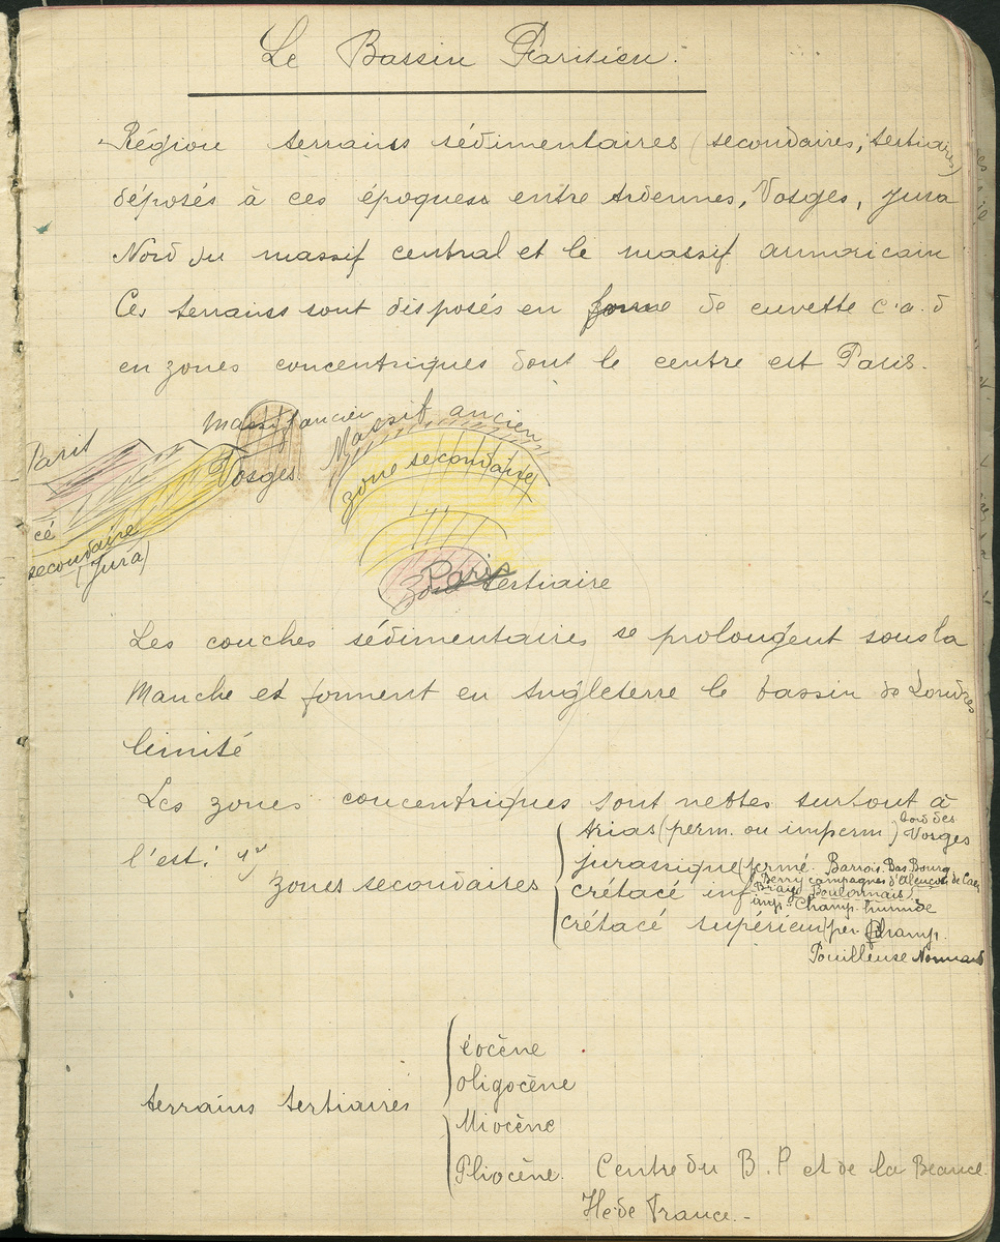 Le Bassin Parisien.
Région terrains sédimentaires (secondaires, tertiaires)
déposés à ces époques entre Ardennes, Vosges, Jura
Nord du massif central et le massif armoricain
Ces terrains sont disposés en forme de cuvette c.a.d
en zones concentriques dont le centre est Paris.
Massif ancien
Massif ancien
Paris
Vosges
zone secondaire
cé
secondaire
(Jura)
Paris
Zone tertiaire
Les couches sédimentaires se prolongent sous la
Manche et forment en Angleterre le bassin de Londres
limité
Les zones concentriques sont nettes surtout à
l'est:
zones secondaires
trias (perm. ou imperm) bord des Vosges
jurassique (fermé. Barrois. Bas Bourg
Berry campagnes d'Alençon de Caen
crétacé inf Bray Boulonnais)
imp. Champ. humide
crétacé supérieur (per Champ.
Pouilleuse Normand
terrains tertiaires
éocène
oligocène
Miocène
Pliocène. Centre du B. P et de la Beauce
Ile de France. -